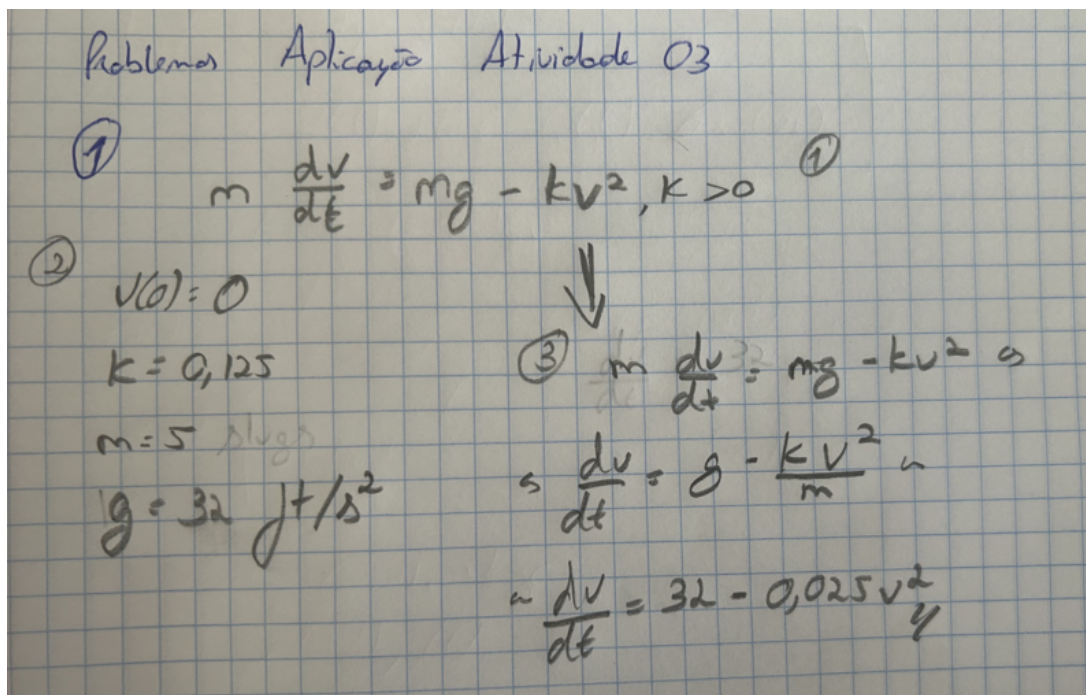 Problemas Aplicação Atividade 03
① m dv/dt = mg - kv², K > 0 ①
② v(0) = 0
K = 0,125
m = 5 slugs
g = 32 ft/s²
③ m dv/dt = mg - kv²
dv/dt = g - kv²/m
dv/dt = 32 - 0,025v²